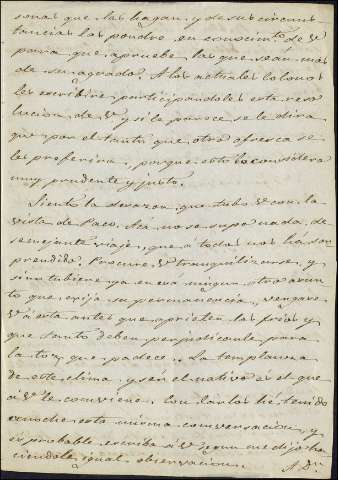 sonas que las hagan, y de sus circuns
tancias las pondre en conocimto. de V
para que apruebe las que sean mas
de su agrado. A los actuales colonos
les escribire participandoles esta reso
lucion de V y si le parece se le dira
que por el tanto que otro ofresca se
les preferira, porque esto lo considero
muy prudente y justo.
Siento la desazon que tubo V con la
vista de Paco. Acá no se supo nada de
semejante viaje, que a todos nos há sor
prendido. Procure V tranquilizarse, y
si no tubiese ya en esa ningun otro asun
to que exija su permanencia, vengase
V á esta antes que aprieten los frios y
que tanto deben perjudicarle para
la tos que padece. La templanza
de este clima y sér el nativo es el que
á V le conviene. Con Carlos hé tenido
anoche esta misma conversacion, y
es probable escriba á V segun me dijo ha
ciendole igual observacion.